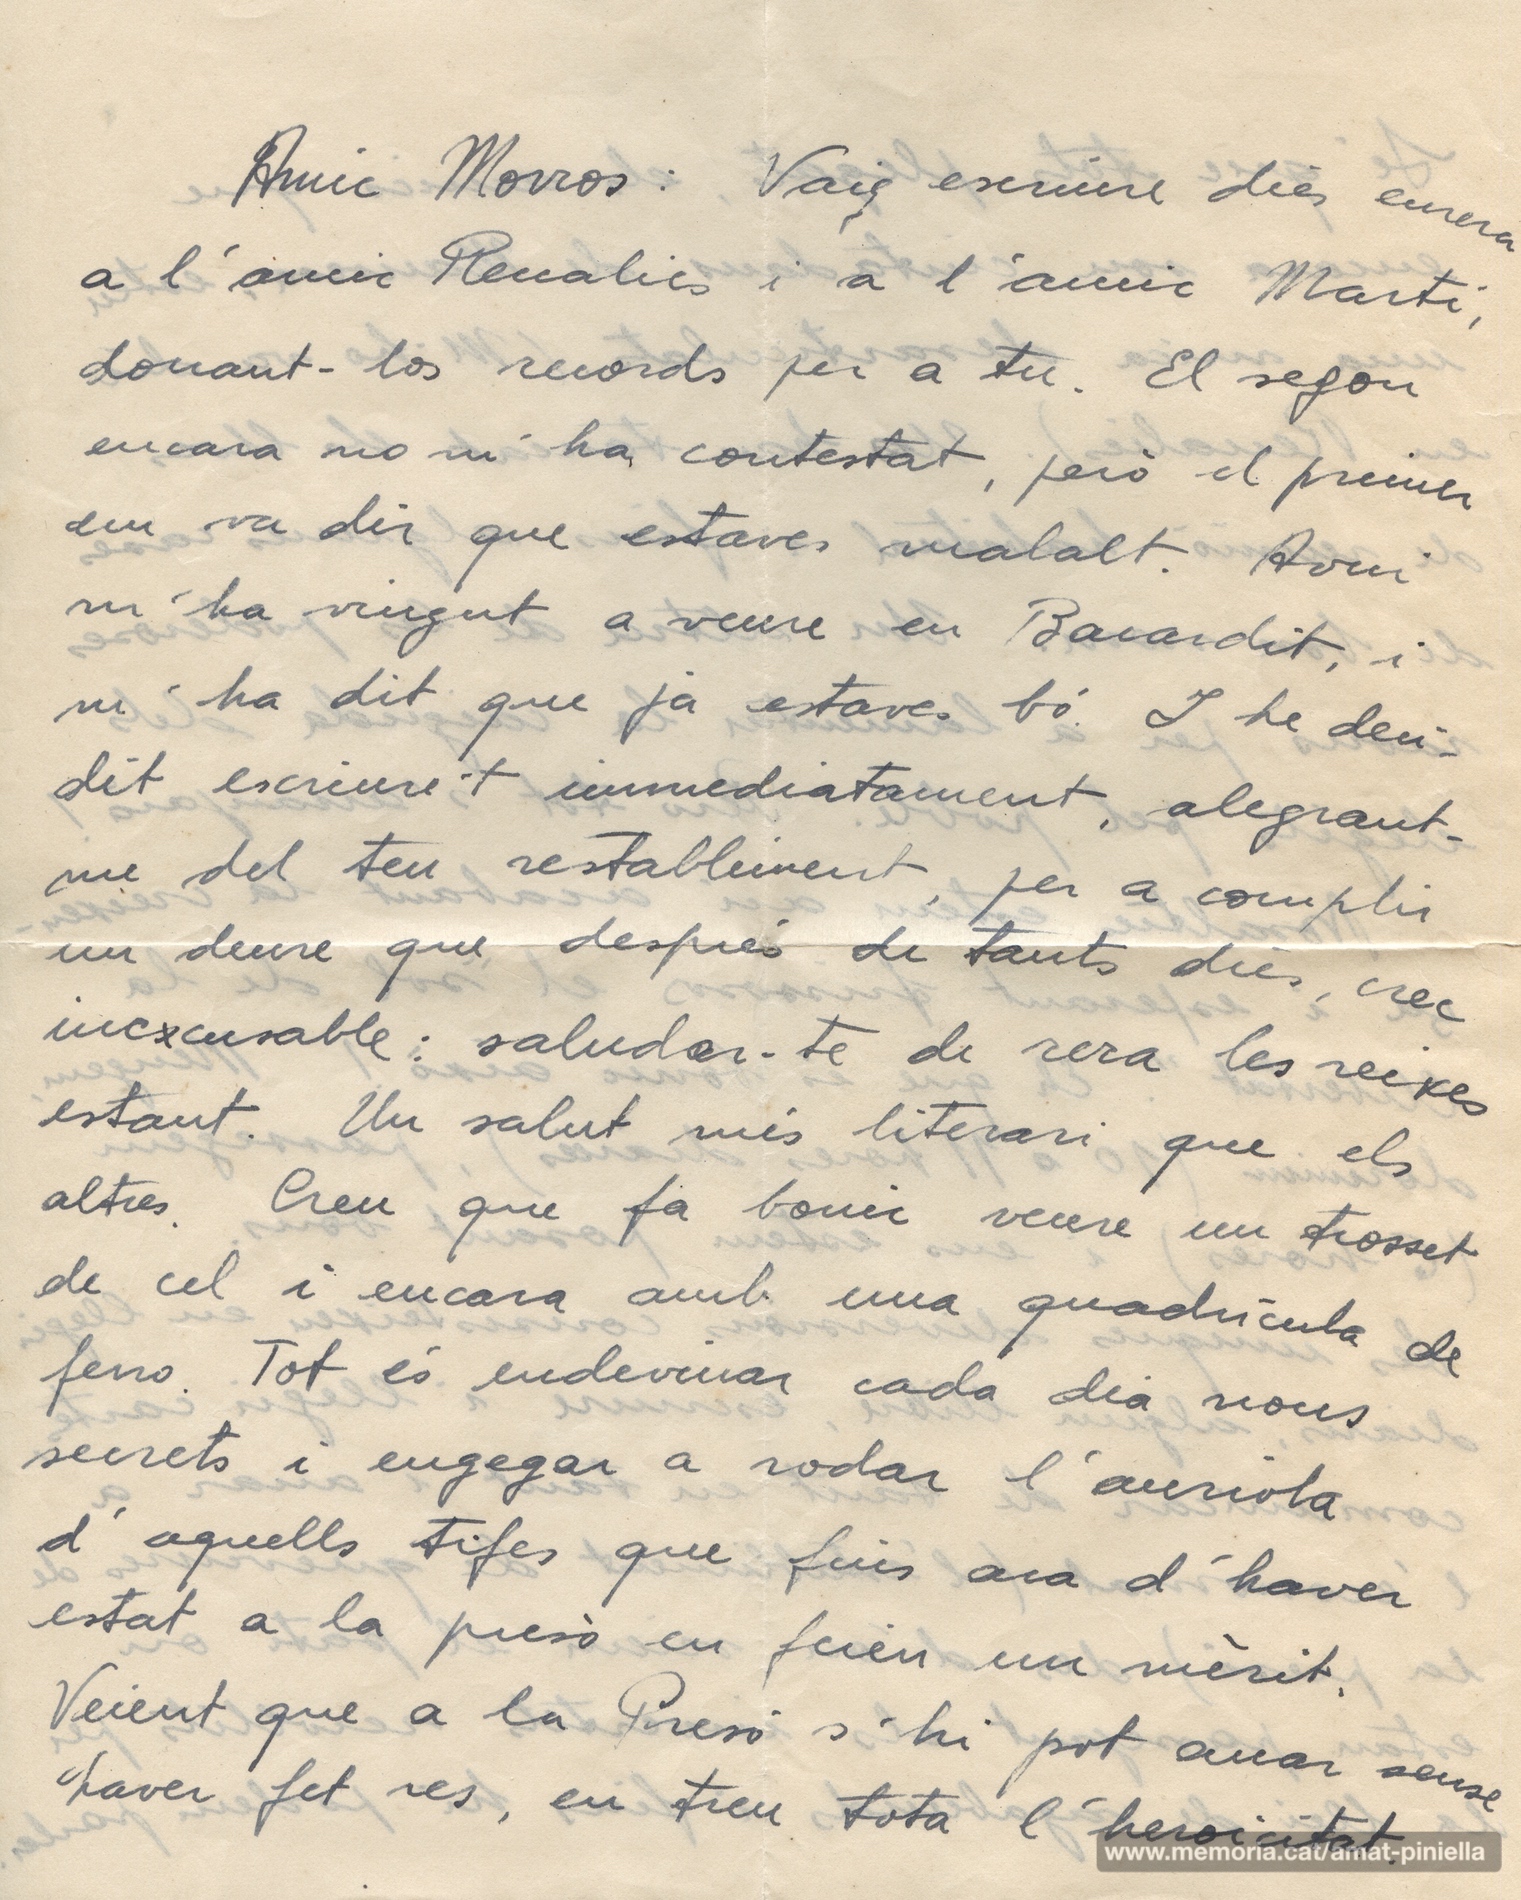 Amic Morros: Vaig escriure dies enrera
a l'amic Planalies i a l'amic Martí,
donant-los records per a tu. El segon
encara no m'ha contestat, però el primer
em va dir que estaves malalt. Avui
m'ha vingut a veure en Bacardit, i
m'ha dit que ja estaves bó. I he deci-
dit escriure't immediatament, alegrant-
me del teu restabliment, per a complir
un deure que després de tants dies, crec
inexcusable: saludar-te de rera les reixes
estant. Un salut més literari que els
altres. Creu que fa bonic veure un trosset
de cel i encara amb una quadrícula de
ferro. Tot és endevinar cada dia nous
secrets i engegar a rodar l'auriola
d'aquells tifes que fins ara d'haver
estat a la presò en feien un mèrit.
Veient que a la Presó s'hi pot anar sense
haver fet res, en treu tota l'heroicitat.
www.memoria.cat/amat-piniella